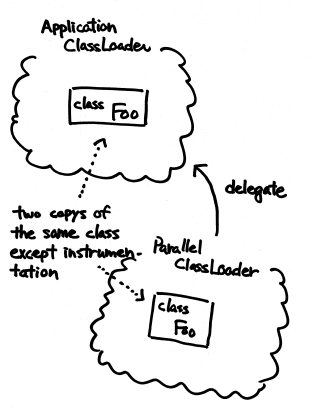 Application
ClassLoader
class Foo
delegate
two copys of
the same class
except instrumen-
tation
Parallel
ClassLoader
class
Foo